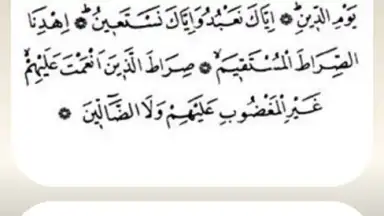 يَوْمِ الدّ۪ينِۜ ۞ اِيَّاكَ نَعْبُدُ وَاِيَّاكَ نَسْتَع۪ينُۜ ۞ اِهْدِنَا
الصِّرَاطَ الْمُسْتَق۪يمَۙ ۞ صِرَاطَ الَّذ۪ينَ اَنْعَمْتَ عَلَيْهِمْۙ
غَيْرِ الْمَغْضُوبِ عَلَيْهِمْ وَلَا الضَّٓالّ۪ينَ ۞